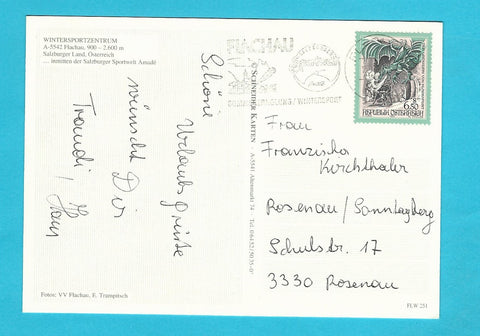 WINTERSPORTZENTRUM
A-5542 Flachau, 900 – 2.600 m
Salzburger Land, Österreich
... inmitten der Salzburger Sportwelt Amadé
Schöne
Urlaubsgrüße
wünscht Dir
Traudi, Hans
Fotos: VV Flachau, E. Trampitsch
© SCHNEIDER KARTEN · A-5541 Altenmarkt 74 · Tel.
FLACHAU
/ WINTERSPORT
6.50
REPUBLIK ÖSTERREICH
Frau
Franziska
Kirchthaler
Rosenau/Sonntagberg
Schulstr. 17
3330 Rosenau
FLW 251